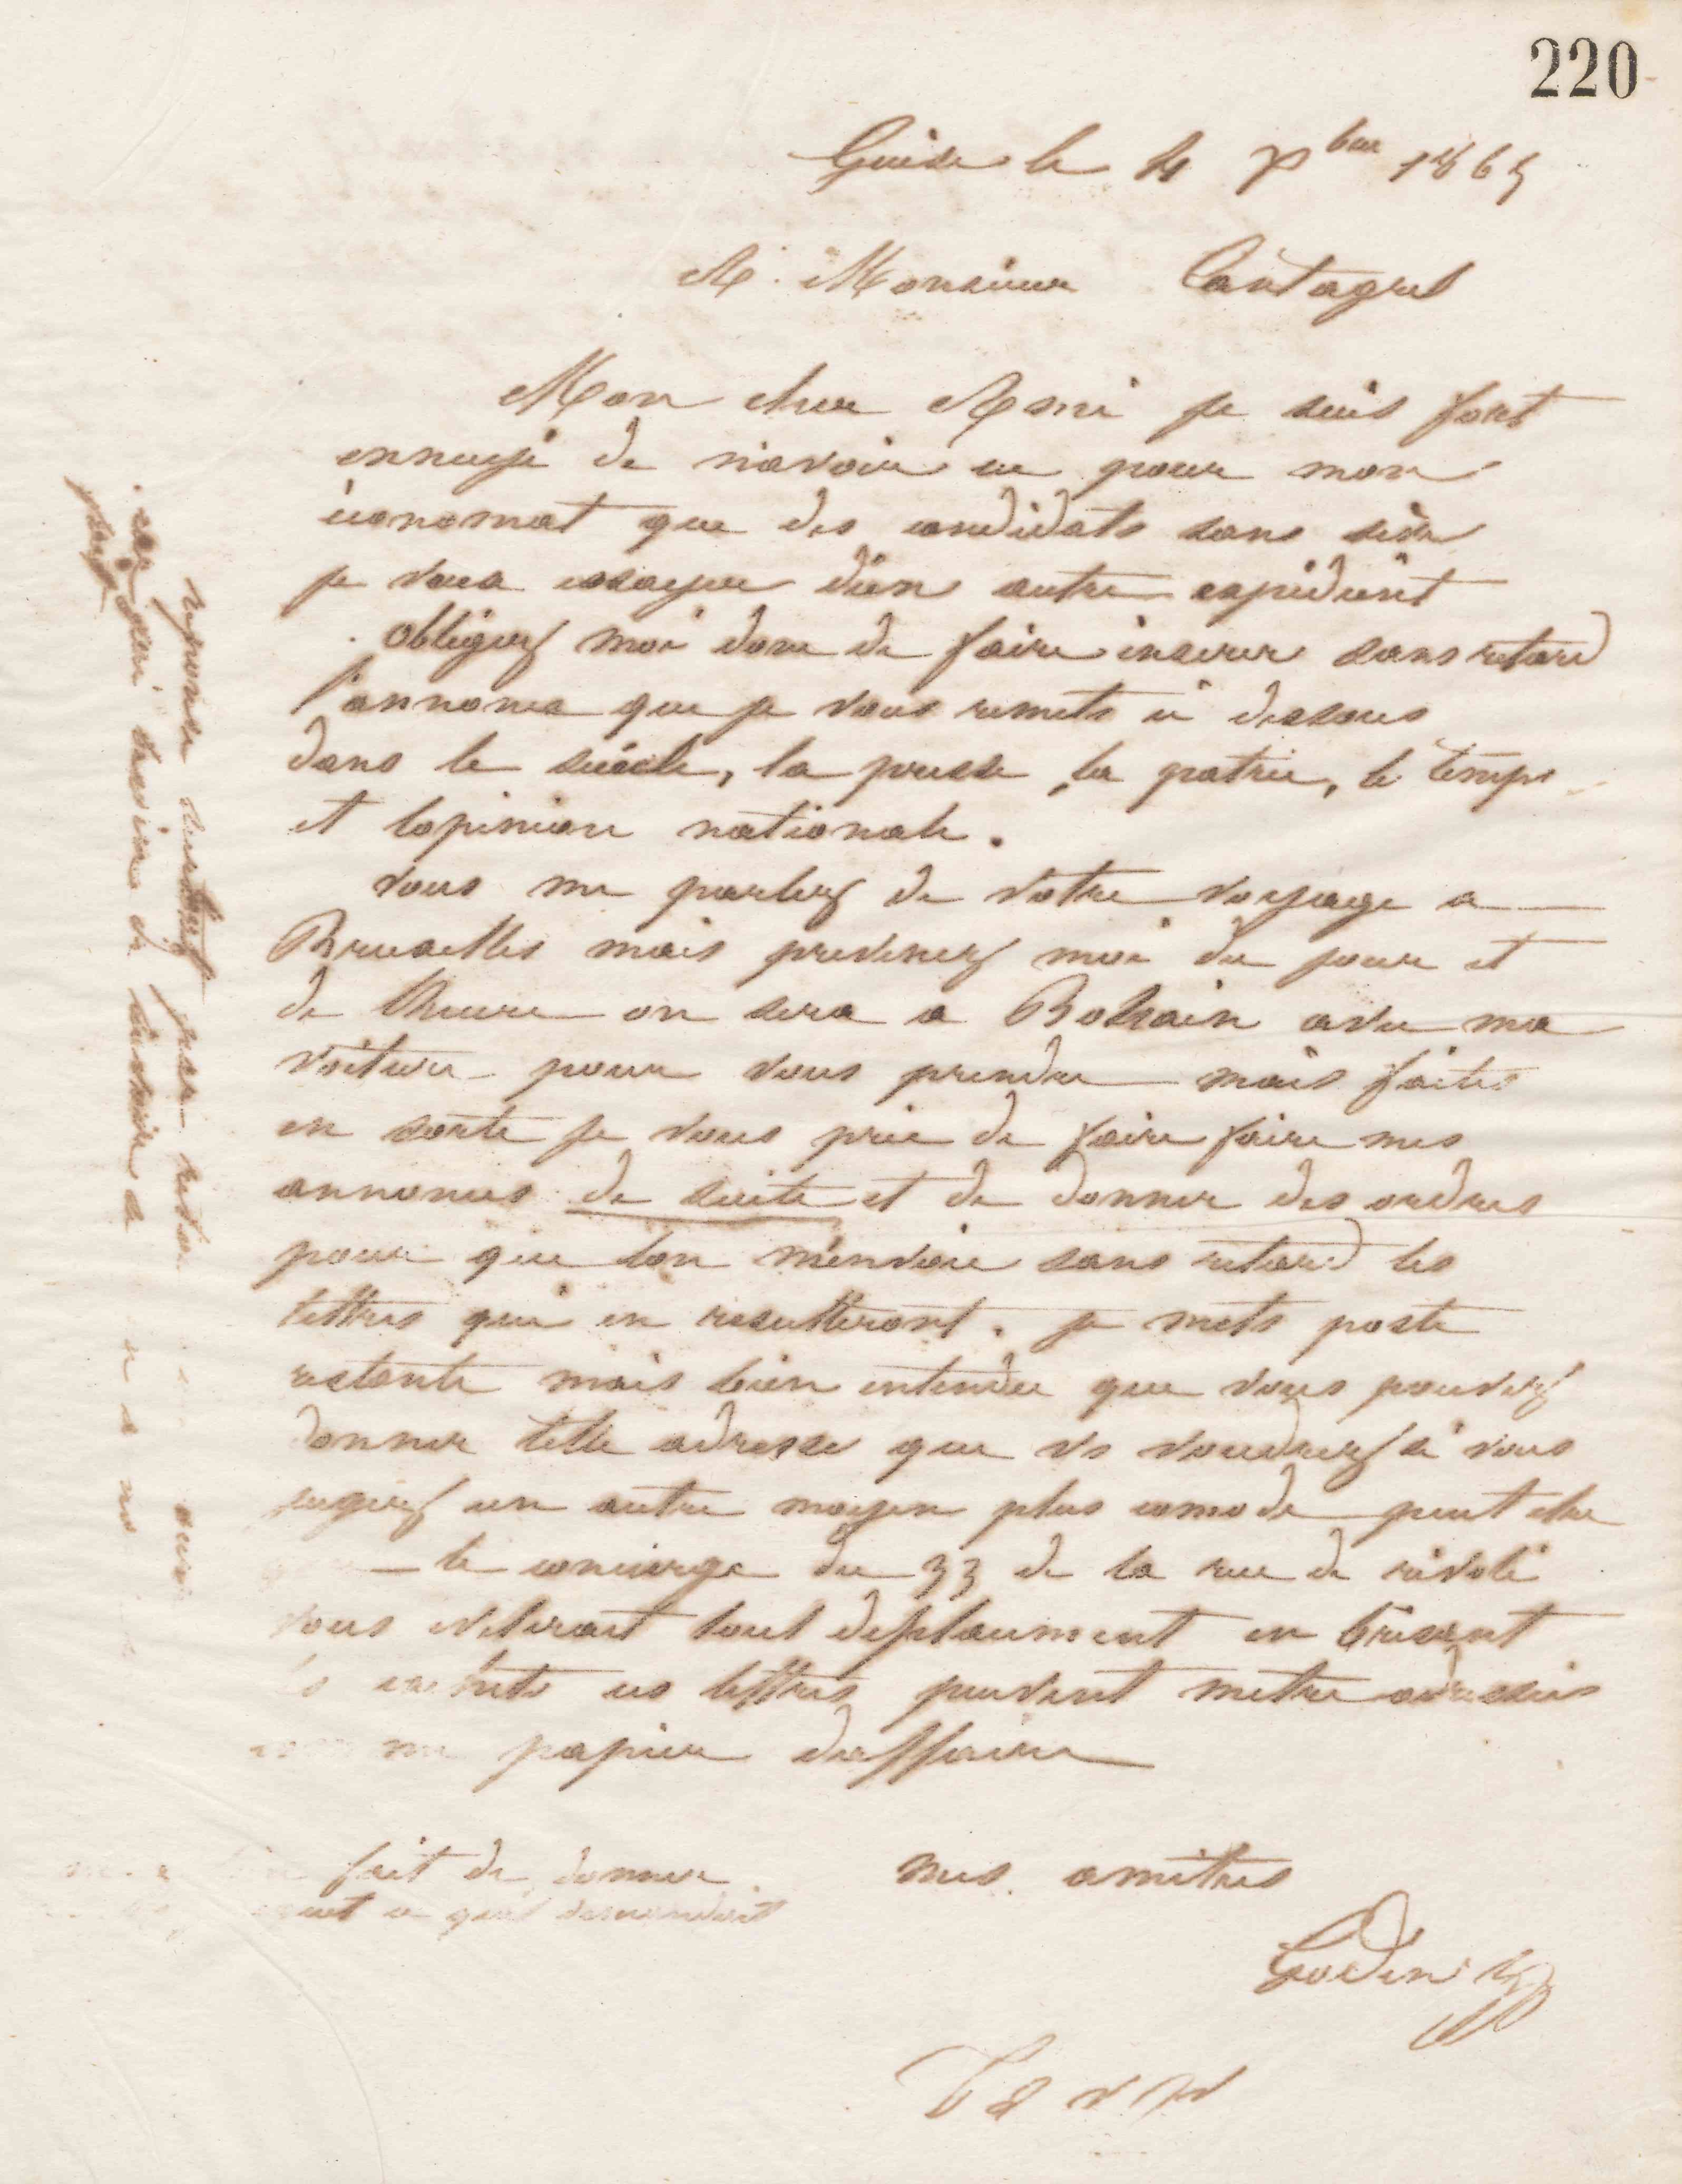 220
Guise le 4 7bre 1865
A. Monsieur Cantagrel
Mon cher Ami je suis fort
ennuyé de n'avoir eu pour mon
économat que des candidats sans
je vous d'un autre expédient
obligez moi donc de faire inserer sans retard
l'annonce que je vous remets ci dessous
dans le siècle, la presse, la patrie, le temps
et lopinion nationale.
vous me parlez de votre voyage a
Bruxelles mais prevenez moi du jour et
de lheure on sera a Bohain avec ma
voiture pour vous prendre mais faites
en sorte je vous prie de faire faire mes
annonces de suite et de donner des ordres
pour que lon m'envoie sans retard les
lettres qui en resulteront. je mets poste
restante mais bien entendu que vous pouvez
donner telle adresse que vs voudrez si vous
jugiez un autre moyen plus comode peut etre
le concierge du 33 de la rue de rivoli
vous eviterait tout deplacement en brisant
cachets ces lettres peuvent metre adressées
comme papier daffaire
fait de donner
ce quil demandait
mes amities
Godin
reponse
car jai besoin de